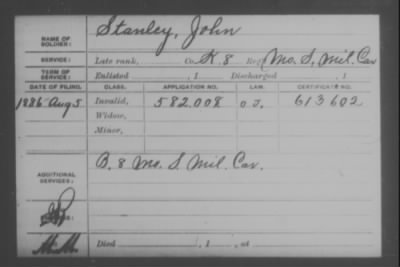 NAME OF SOLDIER: Stanley, John
SERVICE: Late rank, Co. K. 8 Reg't Mo. S. Mil. Cav
TERM OF SERVICE: Enlisted , 1 Discharged , 1
DATE OF FILING. CLASS. APPLICATION NO. LAW. CERTIFICATE NO.
1886 Aug 5 Invalid, 582.008 613602
Widow,
Minor,
ADDITIONAL SERVICES: B. 8 Mo. S. Mil. Cav.
Died , 1 , at